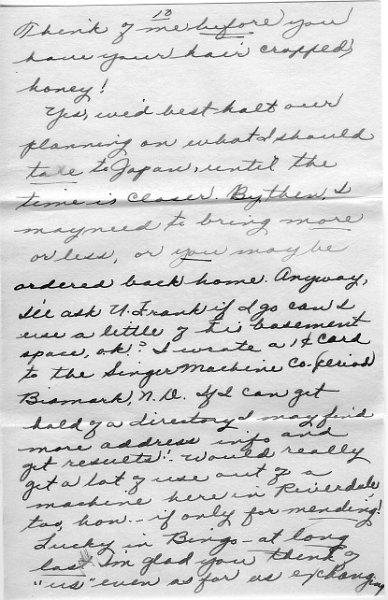 13
Think of me before you
have your hair cropped,
honey!
Yes, we'd best halt our
planning on what I should
take to Japan, until the
time is closer. By then, I
may need to bring more
or less, or you may be
ordered back home. Anyway,
I'll ask U. Frank if I go can I
use a little of his basement
space, ok? I wrote a 1¢ card
to the Singer Machine Co. (period)
Bismark, N.D. If I can get
hold of a directory I may find
more address info and
get results! - Would really
get a lot of use out of a
machine here in Riverdale,
too, hon. - if only for mending!
Lucky in Bingo - at long
last. I'm glad you think of
"us" even as for us exchanging